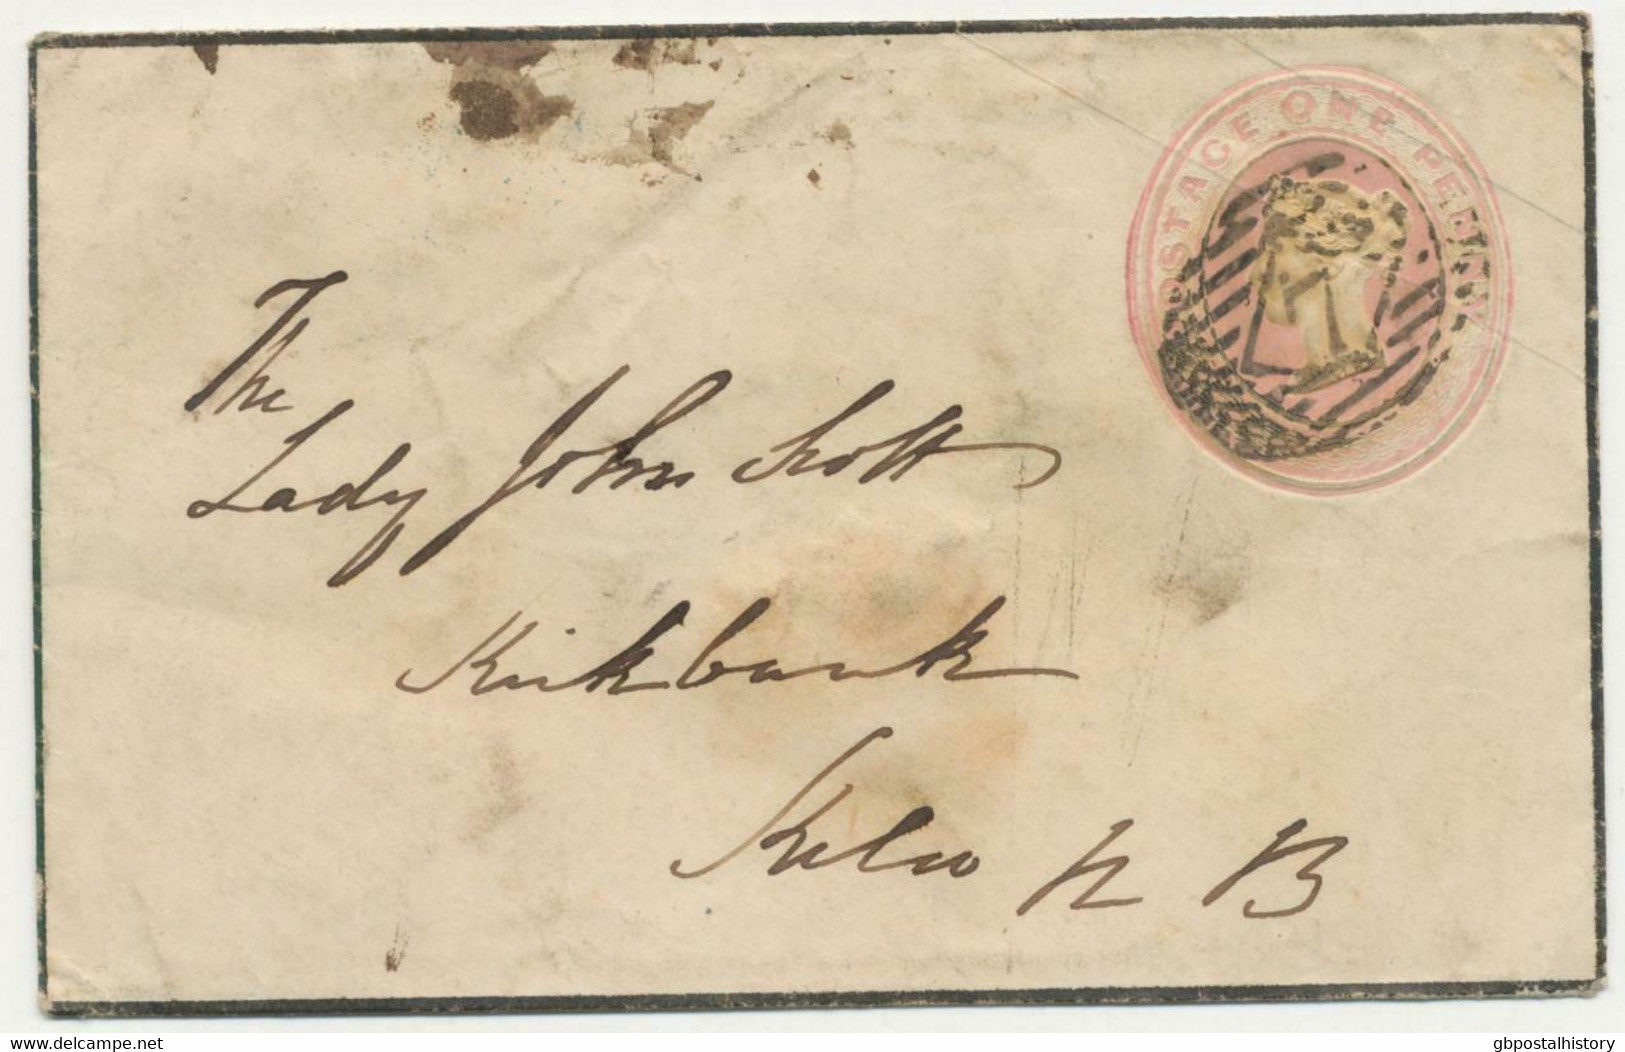 POSTAGE ONE PENNY
The
Lady John Scott
Kirkbank
Kelso N B
www.delcampe.net
gbpostalhistory